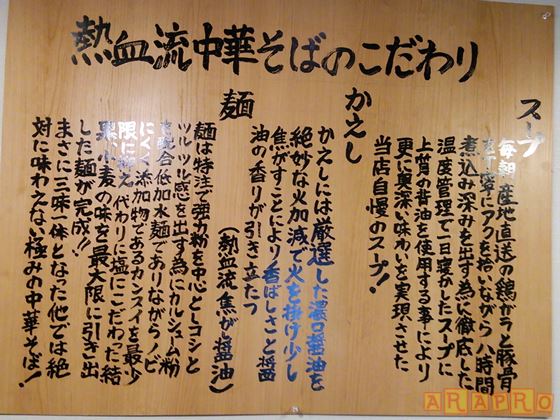 熱血流中華そばのこだわり
スープ
毎朝産地直送の鶏ガラと豚骨
丁寧にアクを拾いながら八時間
煮込み深みを出す為に徹底した
温度管理で一日寝かしたスープに
上質の背油を使用する事により
更に奥深い味わいを実現させた
当店自慢のスープ!
かえし
かえしには厳選した濃口醤油を
絶妙な火加減で火を掛け少し
焦がすことにより香ばしさと醤
油の香りが引き立たつ
(熱血流焦が醤油)
麺
麺は特注で強力粉を中心としコシと
ツルツル感を出す為にカルシューム粉
配合低加水麺でありながらノビ
にくく添加物であるカンスイを最少
限に抑え代わりに塩にこだわった結
果小麦の味を最大限に引き出
した麺が完成!!
まさに三味一体となった他では絶
対に味わえない極みの中華そば!
ARAPRO